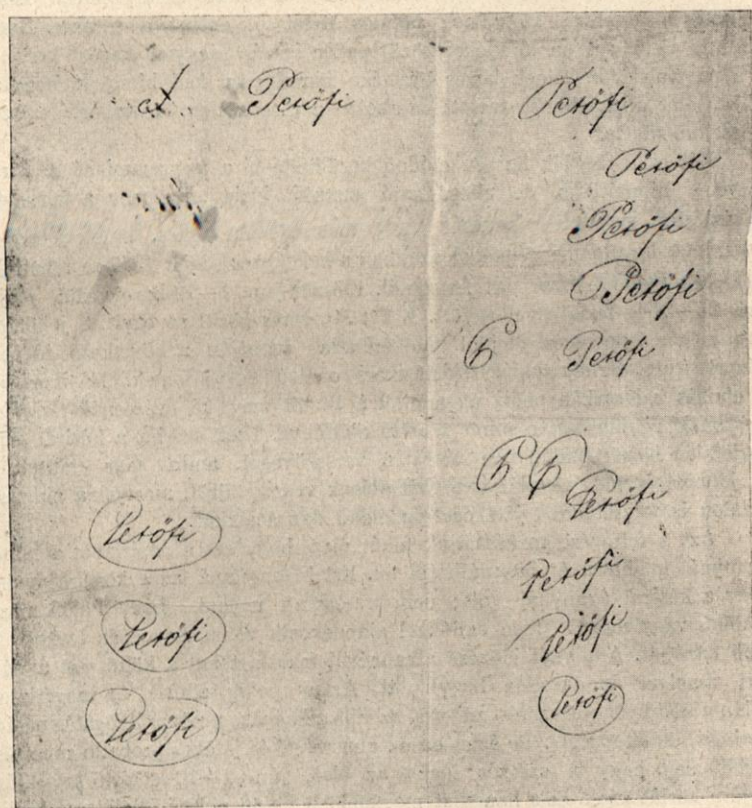 Petőfi Petőfi
Petőfi
Petőfi
Petőfi
P Petőfi
P P Petőfi
Petőfi
Petőfi
Petőfi Petőfi
Petőfi Petőfi